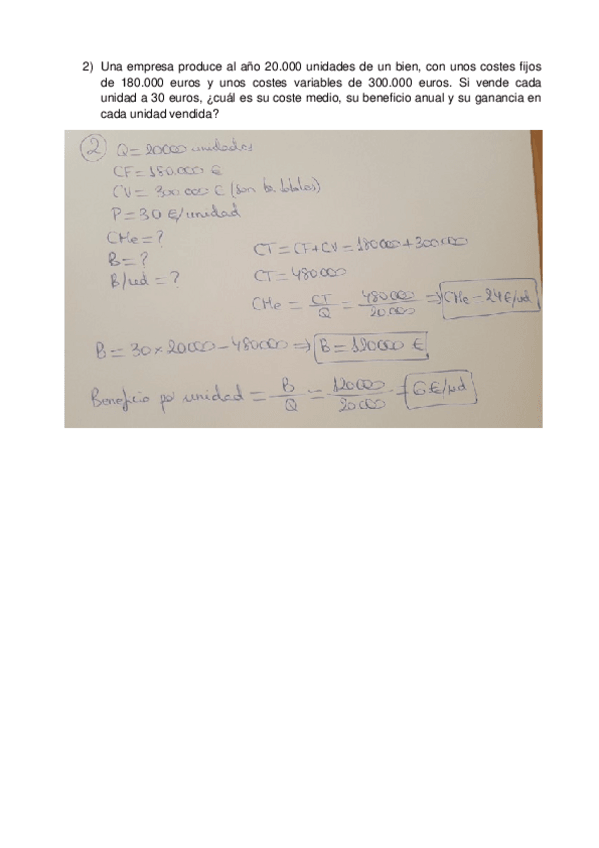 2) Una empresa produce al año 20.000 unidades de un bien, con unos costes fijos
de 180.000 euros y unos costes variables de 300.000 euros. Si vende cada
unidad a 30 euros, ¿cuál es su coste medio, su beneficio anual y su ganancia en
cada unidad vendida?
2 Q = 20000 unidades
CF = 180.000 €
CV = 300 000 € (son los totales)
P = 30 €/unidad
CMe = ?
B = ?
B/ud = ?
CT = CF + CV = 180000 + 300000
CT = 480000
CMe = CT/Q = 480000/20000 ⇒ CMe = 24€/ud
B = 30 × 20000 - 480000 ⇒ B = 120000 €
Beneficio por unidad = B/Q = 120000/20000 = 6€/ud